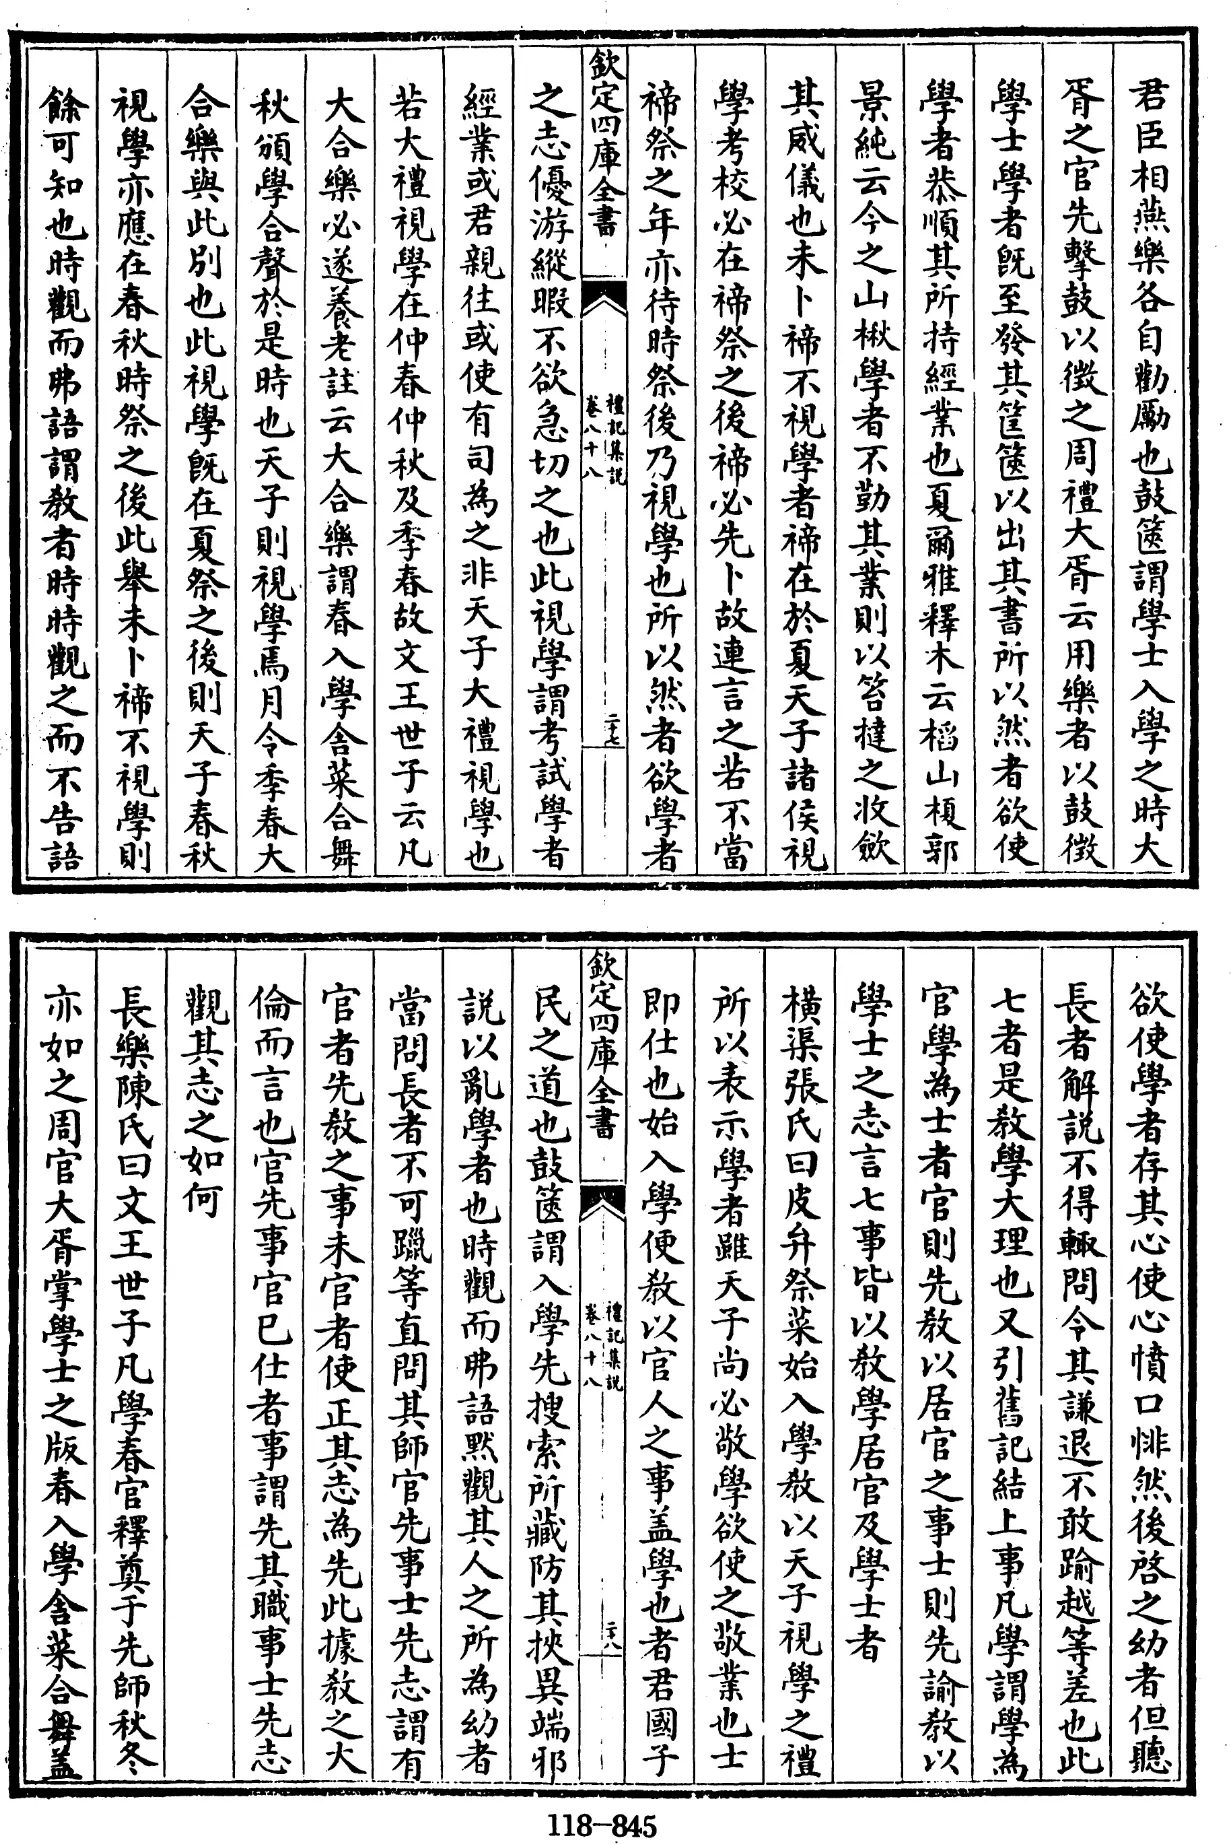 君臣相燕樂各自勸勵也鼓篋謂學士入學之時大
胥之官先擊鼓以徵之周禮大胥云用樂者以鼓徵
學士學者既至發其筐篋以出其書所以然者欲使
學者恭順其所持經業也夏爾雅釋木云槄山榎郭
景純云今之山楸學者不勤其業則以笞撻之收斂
其威儀也未卜禘不視學者禘在於夏天子諸侯視
學考校必在禘祭之後禘必先卜故連言之若不當
禘祭之年亦待時祭後乃視學也所以然者欲學者
欽定四庫全書
禮記集說
卷八十八
二十七
之志優游縱暇不欲急切之也此視學謂考試學者
經業或君親往或使有司為之非天子大禮視學也
若大禮視學在仲春仲秋及季春故文王世子云凡
大合樂必遂養老註云大合樂謂春入學舍菜合舞
秋頒學合聲於是時也天子則視學焉月令季春大
合樂與此別也此視學既在夏祭之後則天子春秋
視學亦應在春秋時祭之後此舉未卜禘不視學則
餘可知也時觀而弗語謂教者時時觀之而不告語
欲使學者存其心使心憤口悱然後啓之幼者但聽
長者解說不得輒問令其謙退不敢踰越等差也此
七者是教學大理也又引舊記結上事凡學謂學為
官學為士者官則先教以居官之事士則先諭教以
學士之志言七事皆以教學居官及學士者
橫渠張氏曰皮弁祭菜始入學教以天子視學之禮
所以表示學者雖天子尚必敬學欲使之敬業也士
即仕也始入學便教以官人之事盖學也者君國子
欽定四庫全書
禮記集說
卷八十八
二十八
民之道也鼓篋謂入學先搜索所藏防其挾異端邪
說以亂學者也時觀而弗語默觀其人之所為幼者
當問長者不可躐等直問其師官先事士先志謂有
官者先教之事未官者使正其志為先此據教之大
倫而言也官先事官已仕者事謂先其職事士先志
觀其志之如何
長樂陳氏曰文王世子凡學春官釋奠于先師秋冬
亦如之周官大胥掌學士之版春入學舍菜合舞盖
118-845